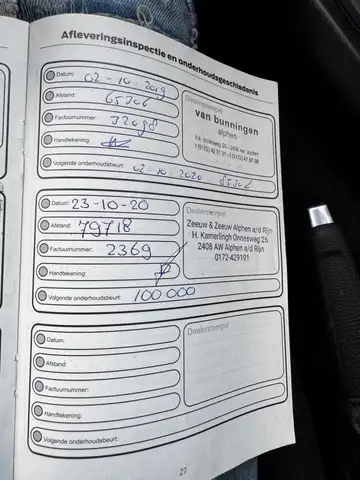 Afleveringsinspectie en onderhoudsgeschiedenis
Datum: 02-10-2019
Afstand: 65306
Factuurnummer: 32098
Handtekening:
Volgende onderhoudsbeurt: 02-10-2020 85306
Dealerstempel
van bunningen
alphen
Datum: 23-10-20
Afstand: 79718
Factuurnummer: 2369
Handtekening:
Volgende onderhoudsbeurt: 100 000
Dealerstempel
Zeeuw & Zeeuw Alphen a/d Rijn
H. Kamerlingh Onnesweg 26
2408 AW Alphen a/d Rijn
0172-429191
Datum:
Afstand:
Factuurnummer:
Handtekening:
Volgende onderhoudsbeurt:
Dealerstempel
27